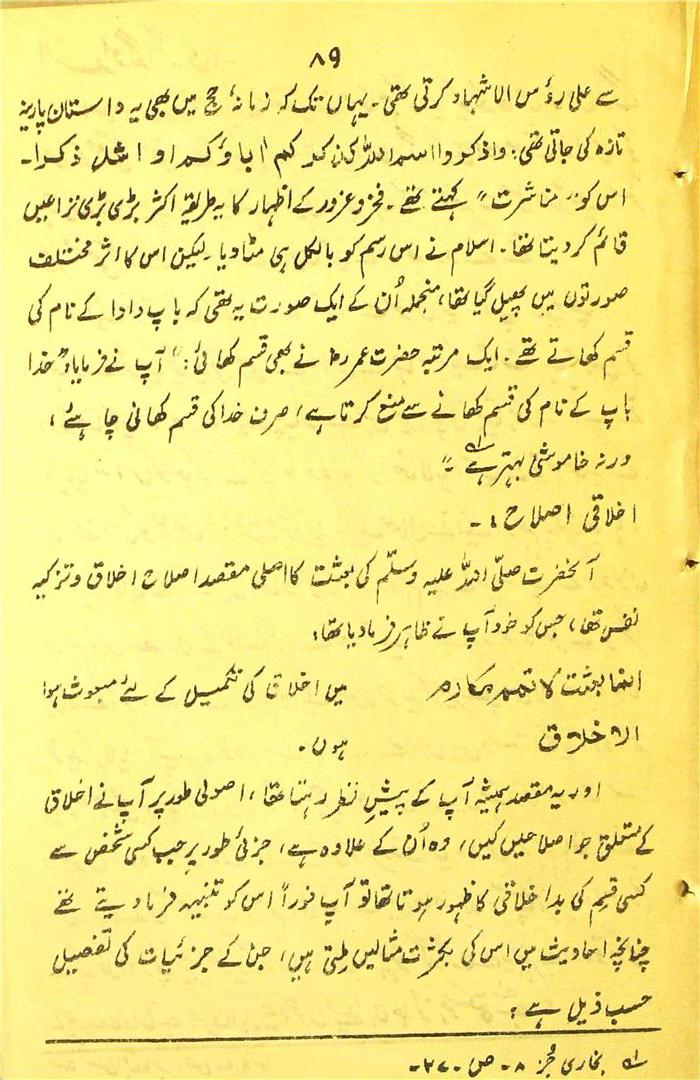 ۸۹
سے علی رؤس الاشہاد کرتی تھی۔ یہاں تک کہ زمانۂ حج میں بھی یہ داستان پارینہ
تازہ کی جاتی تھی: واذکروا اسم اللہ کذکرکم اٰباؤکم او اشد ذکرا۔
اس کو "مناشرت" کہتے تھے۔ فخر و غرور کے اظہار کا یہ طریقہ اکثر بڑی بڑی نزاعیں
قائم کر دیتا تھا۔ اسلام نے اس رسم کو بالکل ہی مٹا دیا۔ لیکن اس کا اثر مختلف
صورتوں میں پھیل گیا تھا، منجملہ اُن کے ایک صورت یہ تھی کہ باپ دادا کے نام کی
قسم کھاتے تھے۔ ایک مرتبہ حضرت عمرؓ نے بھی قسم کھائی: "آپ نے فرمایا" خدا
باپ کے نام کی قسم کھانے سے منع کرتا ہے، صرف خدا کی قسم کھانی چاہئے،
ورنہ خاموشی بہتر ہے ؎۱"۔
اخلاقی اصلاح :۔
آنحضرت صلّی اللہ علیہ وسلّم کی بعثت کا اصلی مقصد اصلاح اخلاق و تزکیہ
نفس تھا، جس کو خود آپ نے ظاہر فرما دیا تھا:
انما بعثت لاتمم مکارم میں اخلاق کی تکمیل کے لئے مبعوث ہوا
الاخلاق ہوں۔
اور یہ مقصد ہمیشہ آپ کے پیشِ نظر رہتا تھا، اصولی طور پر آپ نے اخلاق
کے متعلق جو اصلاحیں کیں، وہ اُن کے علاوہ ہے، جزئی طور پر جب کسی شخص سے
کسی قسم کی بداخلاقی کا ظہور ہوتا تھا تو آپ فوراً اس کو تنبیہ فرما دیتے تھے
چنانچہ احادیث میں اس کی بکثرت مثالیں ملتی ہیں، جن کے جزئیات کی تفصیل
حسب ذیل ہے:
؎۱ بخاری جُز ۸۔ ص ۲۷۰۔